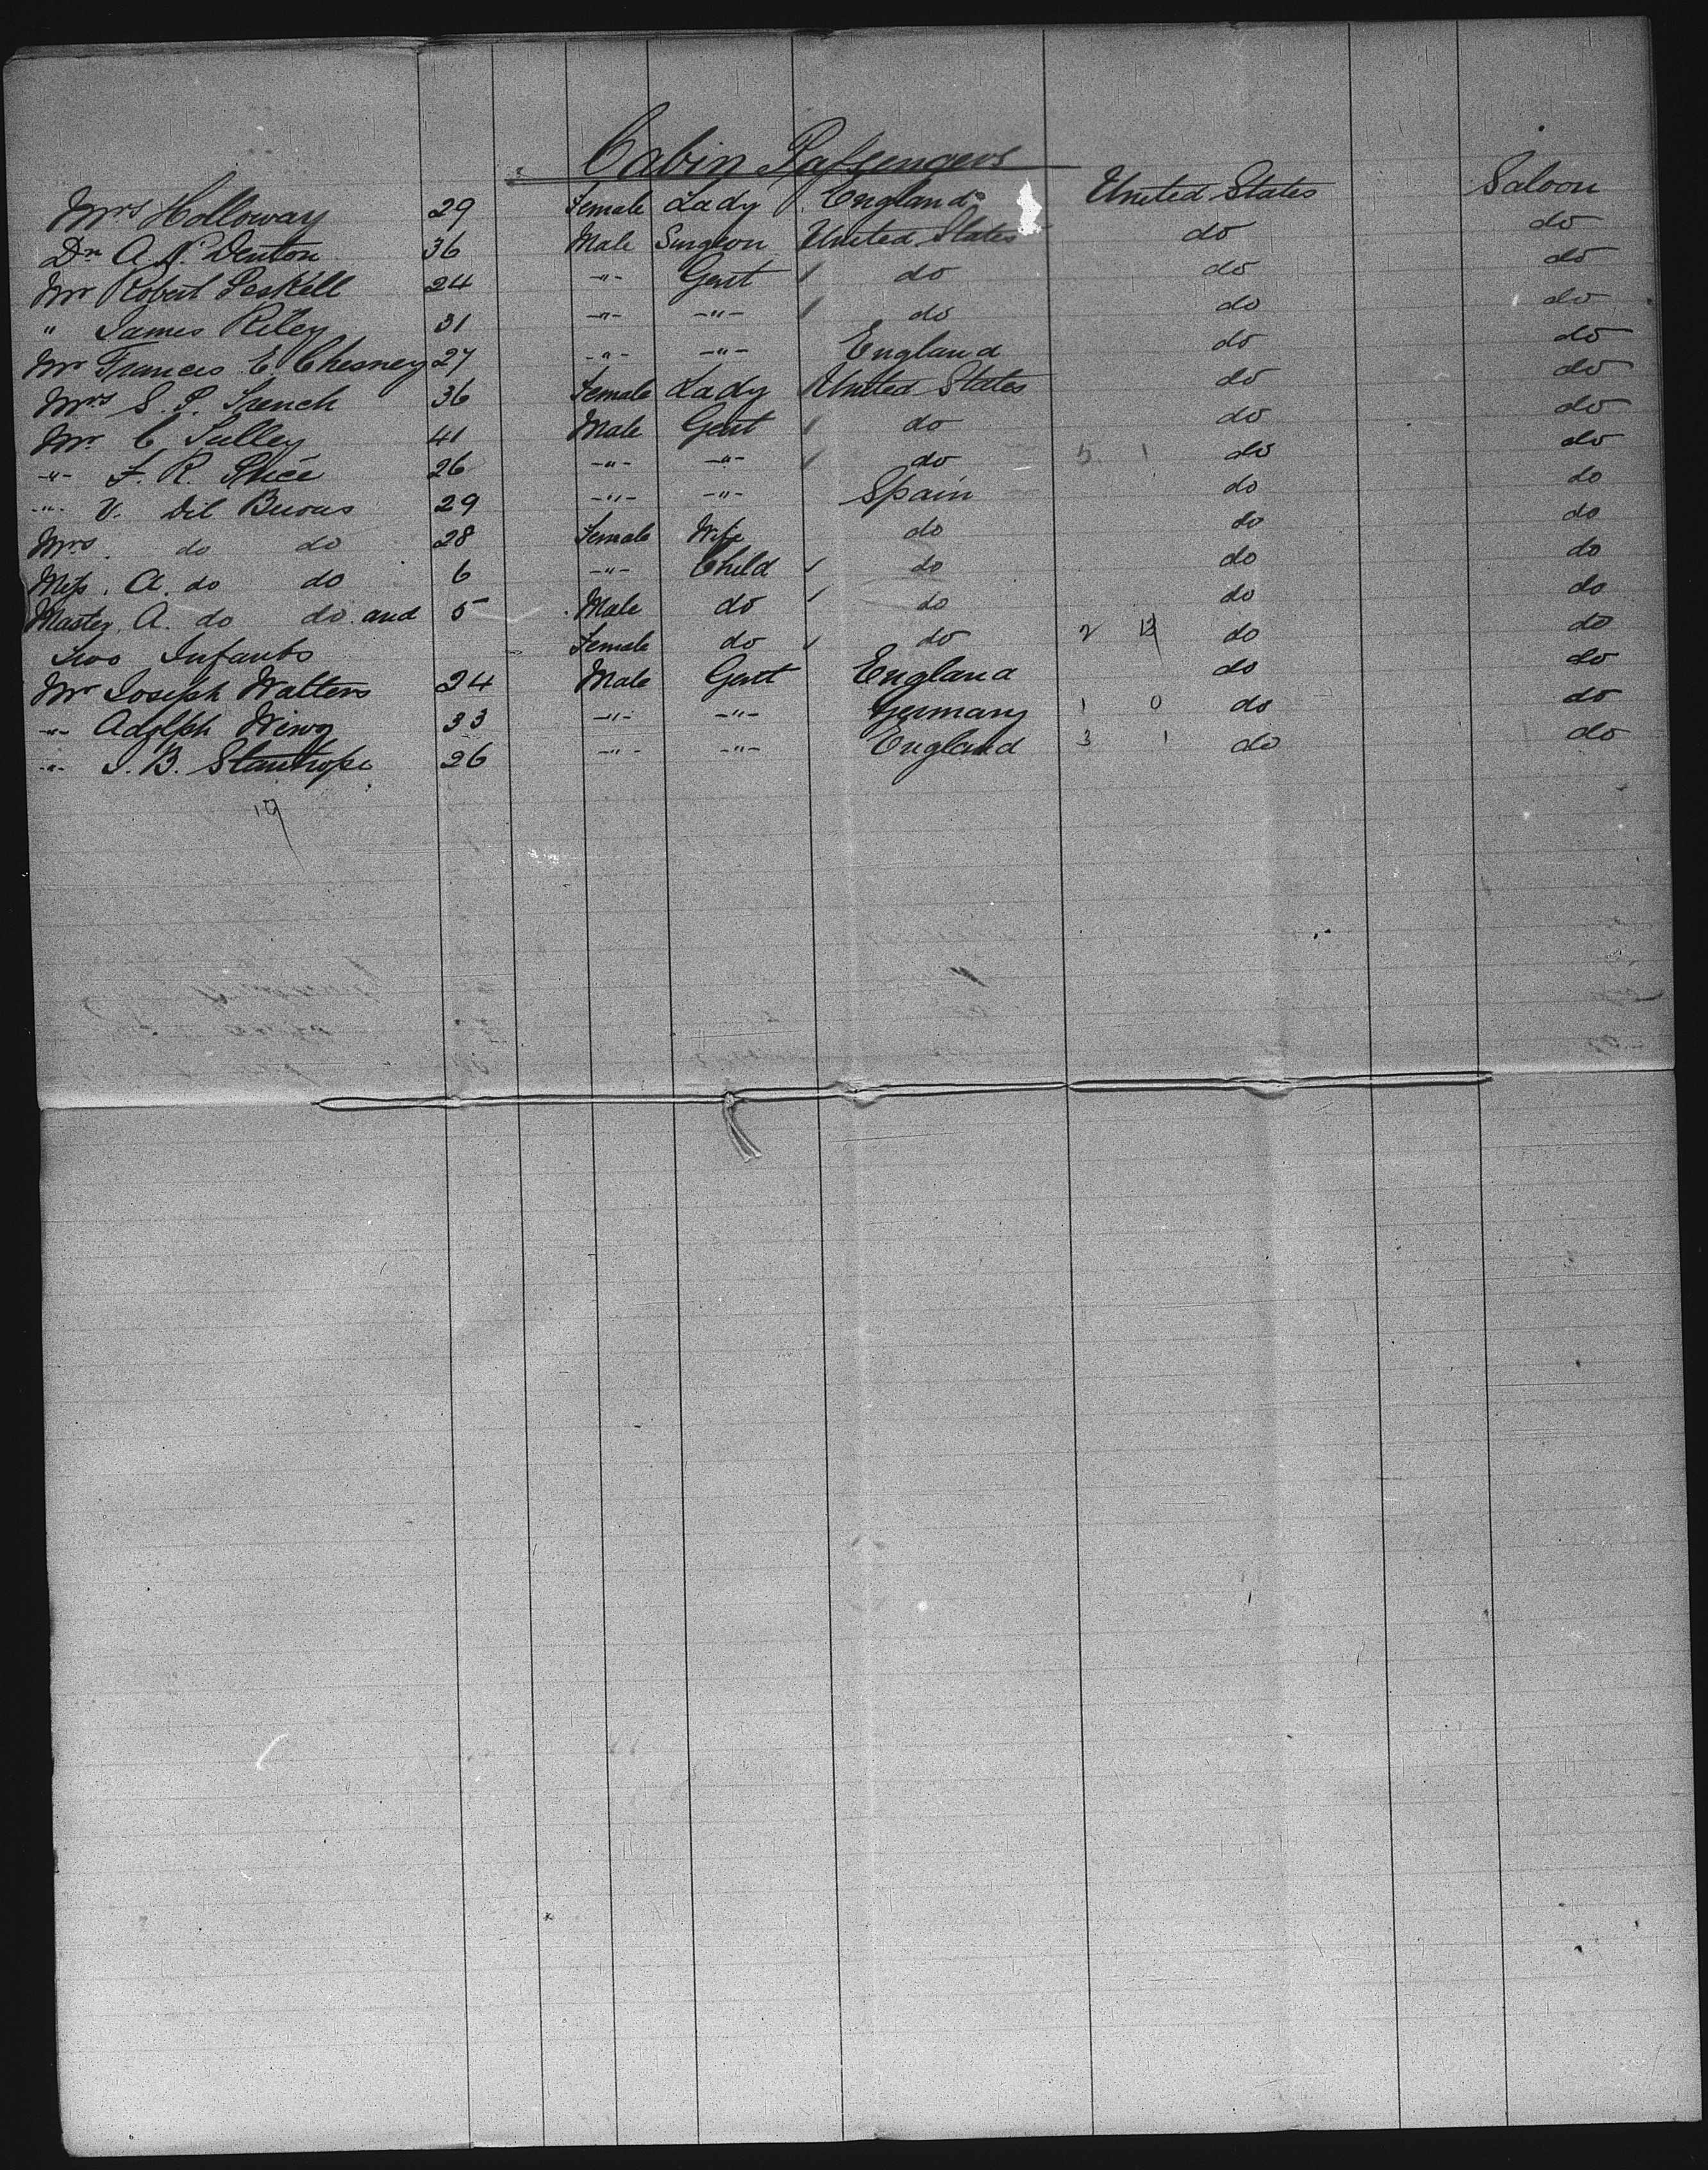 Cabin Passengers
Mrs Holloway 29 Female Lady England United States Saloon
Dr A. P. Denton 36 Male Surgeon United States do do
Mr Robert Peskell 24 -"- Gent do do do
" James Riley 31 -"- -"- do do do
Mr Francis E. Chesney 27 -"- -"- England do do
Mrs S. P. French 36 Female Lady United States do do
Mr C Sulley 41 Male Gent do do do
-"- F. R. Price 26 -"- -"- do 5 1 do do
-"- V. Dil Buous 29 -"- -"- Spain do do
Mrs do do 28 Female Wife do do do
Miss. A. do do 6 -"- Child do do do
Master. A. do do and 5 Male do do do do
Two Infants Female do do 2 13 do do
Mr Joseph Walters 24 Male Gent England do do
-"- Adolph 33 -"- -"- Germany 1 0 do do
-"- J. B. Stanhope 26 -"- -"- England 3 1 do do